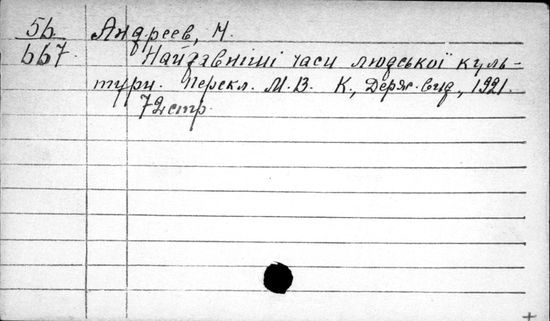 5b Андреев, М.
bb7 Найдавніші часи людської куль-
тури. Перекл. М.В. К., Держ.вид., 1921.
72стр.